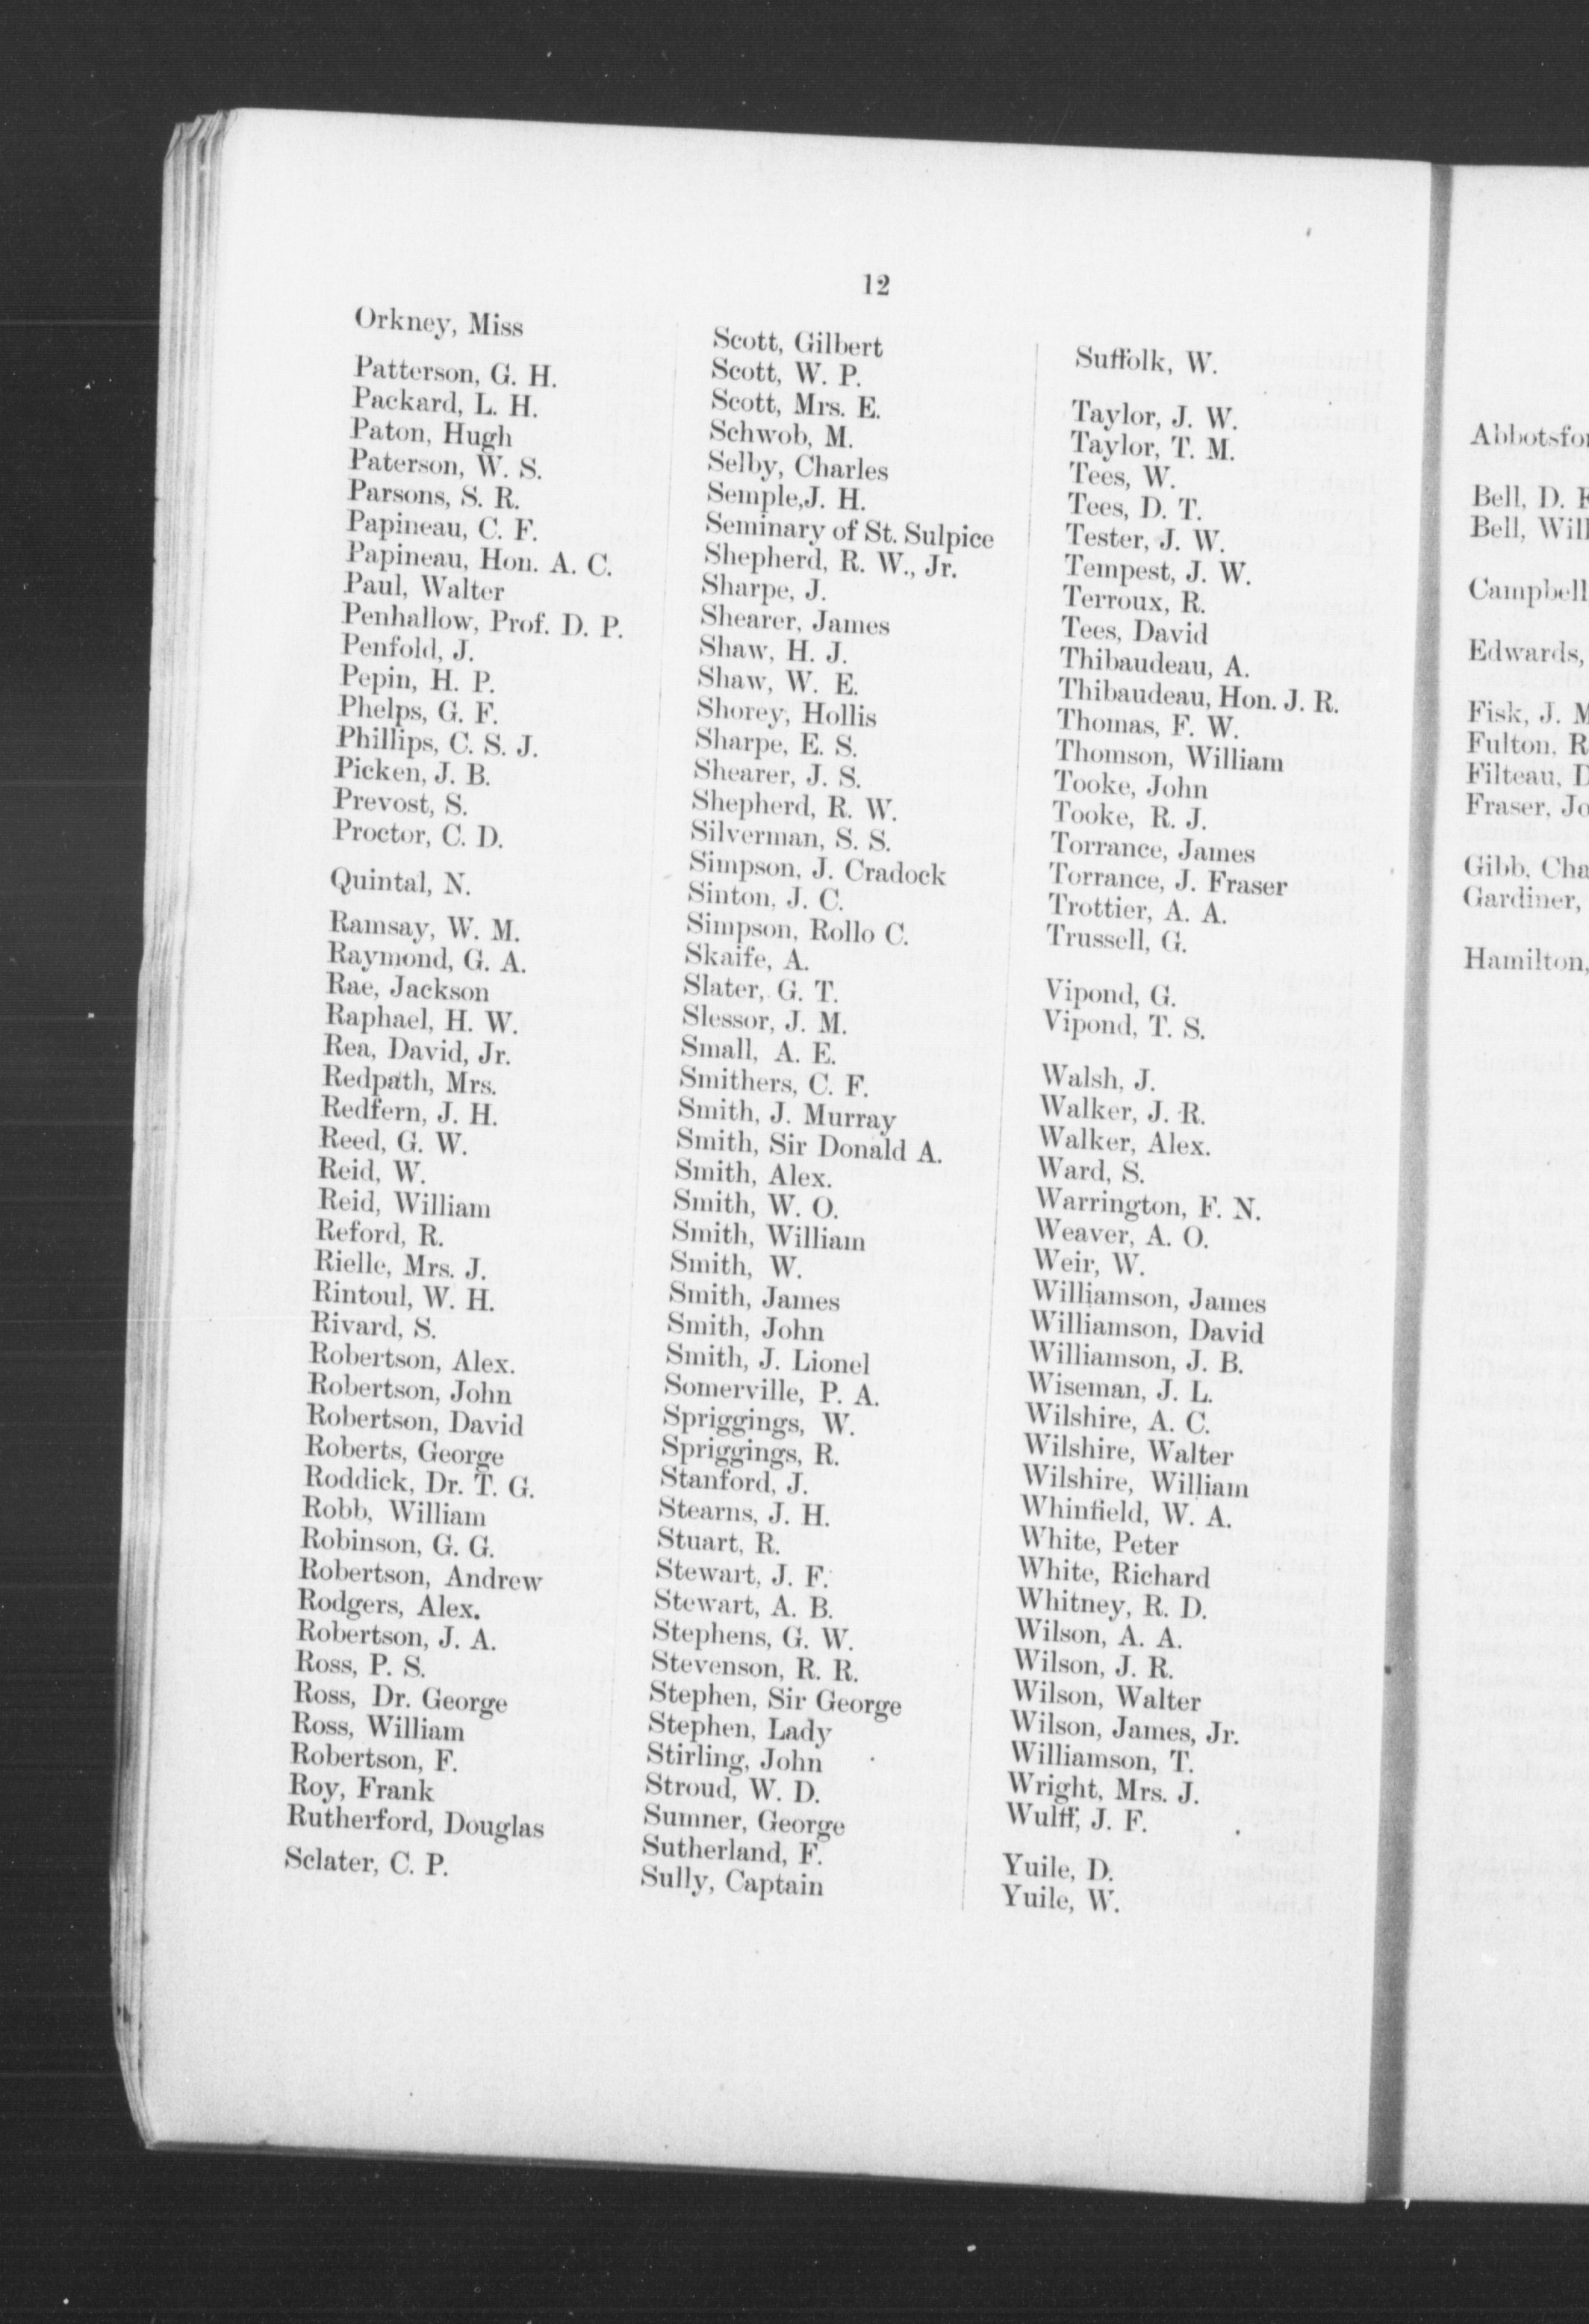 12
Orkney, Miss
Patterson, G. H.
Packard, L. H.
Paton, Hugh
Paterson, W. S.
Parsons, S. R.
Papineau, C. F.
Papineau, Hon. A. C.
Paul, Walter
Penhallow, Prof. D. P.
Penfold, J.
Pepin, H. P.
Phelps, G. F.
Phillips, C. S. J.
Picken, J. B.
Prevost, S.
Proctor, C. D.
Quintal, N.
Ramsay, W. M.
Raymond, G. A.
Rae, Jackson
Raphael, H. W.
Rea, David, Jr.
Redpath, Mrs.
Redfern, J. H.
Reed, G. W.
Reid, W.
Reid, William
Reford, R.
Rielle, Mrs. J.
Rintoul, W. H.
Rivard, S.
Robertson, Alex.
Robertson, John
Robertson, David
Roberts, George
Roddick, Dr. T. G.
Robb, William
Robinson, G. G.
Robertson, Andrew
Rodgers, Alex.
Robertson, J. A.
Ross, P. S.
Ross, Dr. George
Ross, William
Robertson, F.
Roy, Frank
Rutherford, Douglas
Sclater, C. P.
Scott, Gilbert
Scott, W. P.
Scott, Mrs. E.
Schwob, M.
Selby, Charles
Semple,J. H.
Seminary of St. Sulpice
Shepherd, R. W., Jr.
Sharpe, J.
Shearer, James
Shaw, H. J.
Shaw, W. E.
Shorey, Hollis
Sharpe, E. S.
Shearer, J. S.
Shepherd, R. W.
Silverman, S. S.
Simpson, J. Cradock
Sinton, J. C.
Simpson, Rollo C.
Skaife, A.
Slater, G. T.
Slessor, J. M.
Small, A. E.
Smithers, C. F.
Smith, J. Murray
Smith, Sir Donald A.
Smith, Alex.
Smith, W. O.
Smith, William
Smith, W.
Smith, James
Smith, John
Smith, J. Lionel
Somerville, P. A.
Spriggings, W.
Spriggings, R.
Stanford, J.
Stearns, J. H.
Stuart, R.
Stewart, J. F.
Stewart, A. B.
Stephens, G. W.
Stevenson, R. R.
Stephen, Sir George
Stephen, Lady
Stirling, John
Stroud, W. D.
Sumner, George
Sutherland, F.
Sully, Captain
Suffolk, W.
Taylor, J. W.
Taylor, T. M.
Tees, W.
Tees, D. T.
Tester, J. W.
Tempest, J. W.
Terroux, R.
Tees, David
Thibaudeau, A.
Thibaudeau, Hon. J. R.
Thomas, F. W.
Thomson, William
Tooke, John
Tooke, R. J.
Torrance, James
Torrance, J. Fraser
Trottier, A. A.
Trussell, G.
Vipond, G.
Vipond, T. S.
Walsh, J.
Walker, J. R.
Walker, Alex.
Ward, S.
Warrington, F. N.
Weaver, A. O.
Weir, W.
Williamson, James
Williamson, David
Williamson, J. B.
Wiseman, J. L.
Wilshire, A. C.
Wilshire, Walter
Wilshire, William
Whinfield, W. A.
White, Peter
White, Richard
Whitney, R. D.
Wilson, A. A.
Wilson, J. R.
Wilson, Walter
Wilson, James, Jr.
Williamson, T.
Wright, Mrs. J.
Wulff, J. F.
Yuile, D.
Yuile, W.
Bell, D.
Bell,
Campbell
Edwards,
Fisk, J.
Fulton,
Filteau,
Fraser,
Gibb,
Gardiner,
Hamilton,